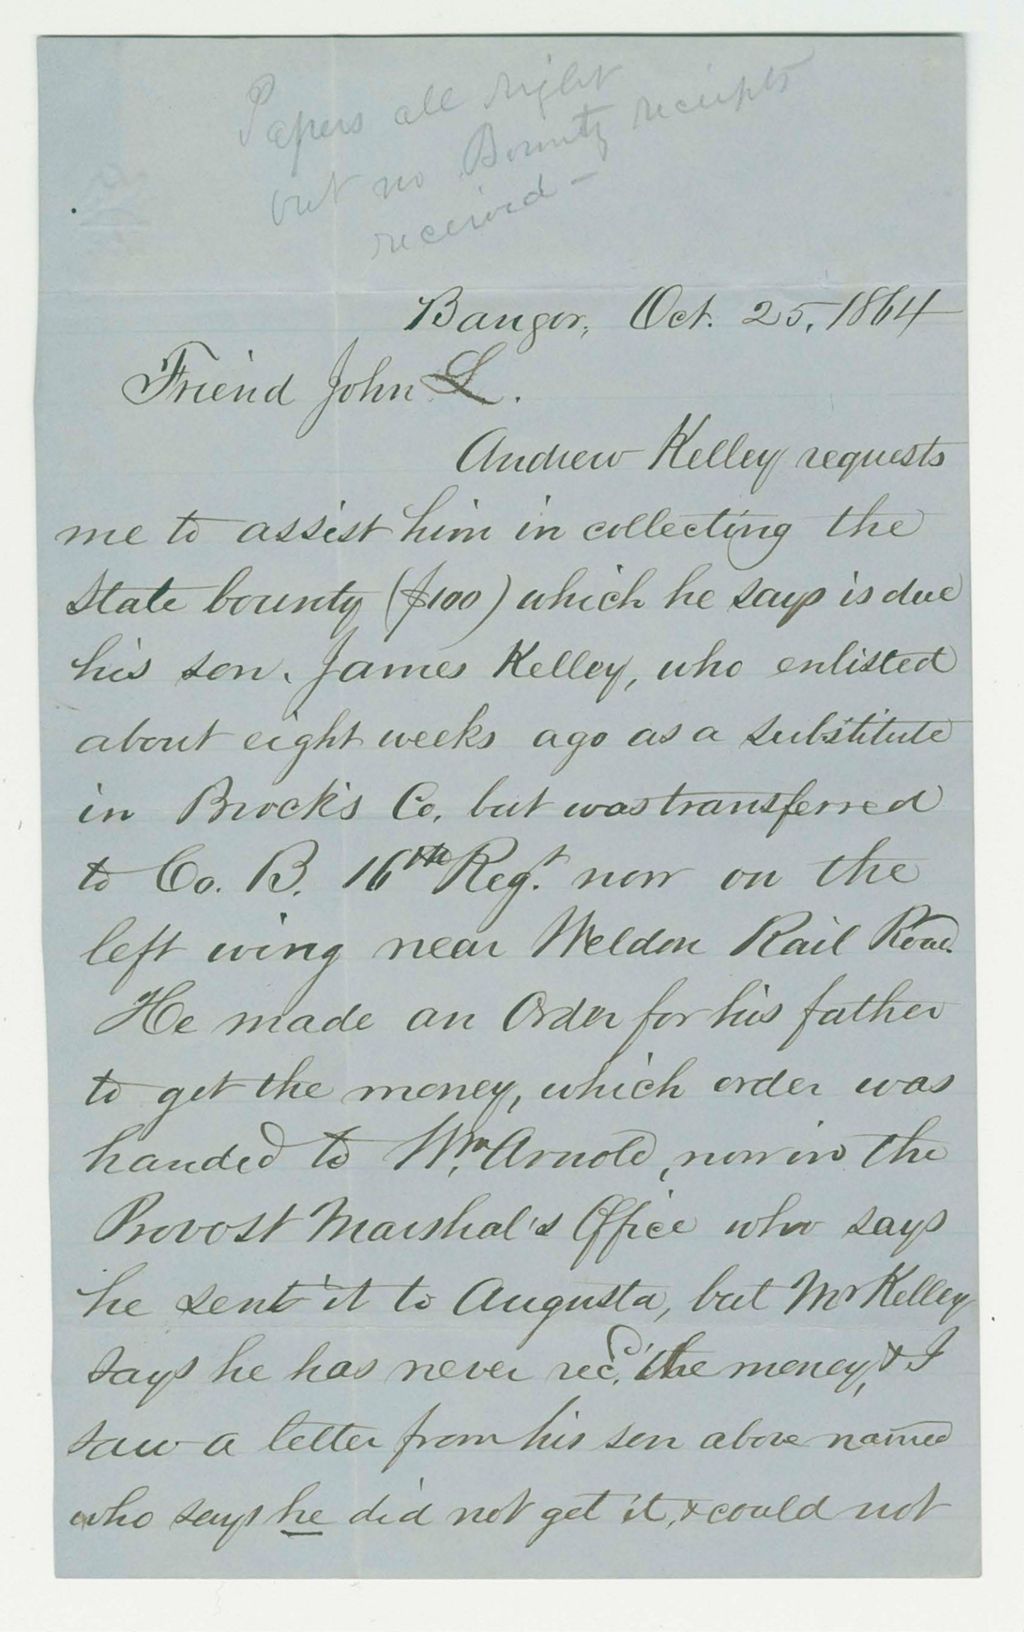 Papers all right
but no Bounty receipts
received -
Bangor, Oct. 25, 1864
Friend John L.
Andrew Kelley requests
me to assist him in collecting the
State bounty ($100) which he says is due
his son, James Kelley, who enlisted
about eight weeks ago as a substitute
in Brock's Co. but was transferred
to Co. B. 16th Regt. now on the
left wing near Weldon Rail Road.
He made an Order for his father
to get the money, which order was
handed to Wm. Arnold, now in the
Provost Marshal's Office who says
he sent it to Augusta, but Mr Kelley
says he has never recd. the money, & I
saw a letter from his son above named
who says he did not get it, & could not